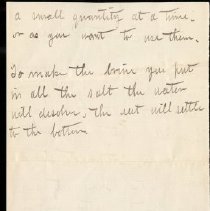 a small quantity at a time.
or as you want to use them.
To make the brine you put
in all the salt the water
will desolve, the rest will settle
to the bottom